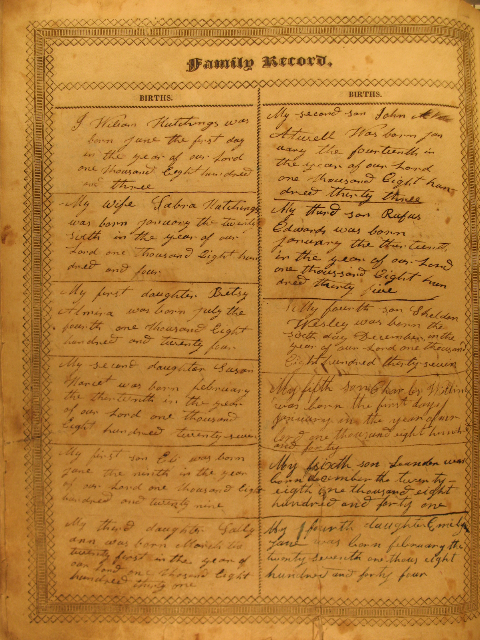 Family Record.
BIRTHS.
I William Hutchings was
born June the first day
in the year of our Lord
one thousand Eight hundred
and three
My Wife Sabra Hutchings
was born January the twenty
sixth in the year of our
Lord one thousand Eight hun
dred and four
My first daughter Betsy
Almira was born July the
fourth one thousand Eight
hundred and twenty four
My second daughter Susan
Harriet was born february
the thirteenth in the year
of our Lord one thousand
Eight hundred twenty seven
My first son Eli was born
June the ninth in the year
of our Lord one thousand Eight
hundred and twenty nine
My third daughter Sally
ann was born March the
twenty first in the year of
our Lord one thousand Eight
hundred thirty one
BIRTHS.
My second son John
Atwell Was born Jan
uary the fourteenth in
the year of our Lord
one thousand Eight hun
dred thirty three
My third son Rufus
Edwards was born
January the thirteenth
in the year of our Lord
one thousand Eight hun
dred thirty five
My fourth son Sheldon
Wesley was born the
sixth day December in the
year of our Lord one thousand
Eight hundred thirty seven
My fifth son
was born the first day
January in the year of our
Lord one thousand eight hundred
and forty
My sixth son Leander was
born december the twenty
eigth one thousand eight
hundred and forty one
My fourth daughter Emily
Jane was born february the
twenty seventh one thous eight
hundred and forty four